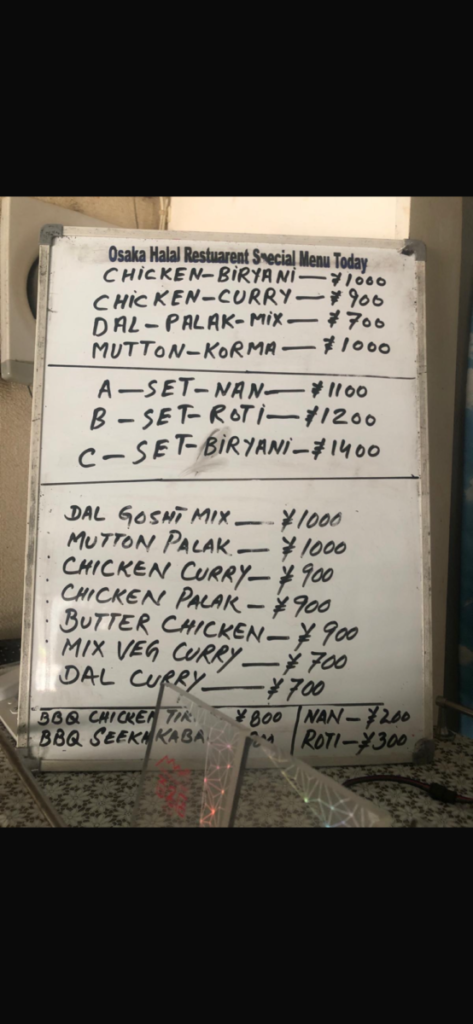 Osaka Halal Restuarent Special Menu Today
CHICKEN-BIRYANI — ¥1000
CHICKEN-CURRY — ¥900
DAL-PALAK-MIX — ¥700
MUTTON-KORMA — ¥1000
A-SET-NAN — ¥1100
B-SET-ROTI — ¥1200
C-SET-BIRYANI — ¥1400
DAL GOSHT MIX — ¥1000
MUTTON PALAK — ¥1000
CHICKEN CURRY — ¥900
CHICKEN PALAK — ¥900
BUTTER CHICKEN — ¥900
MIX VEG CURRY — ¥700
DAL CURRY — ¥700
BBQ CHICKEN ¥800 NAN — ¥200
BBQ SEEKH ROTI — ¥300